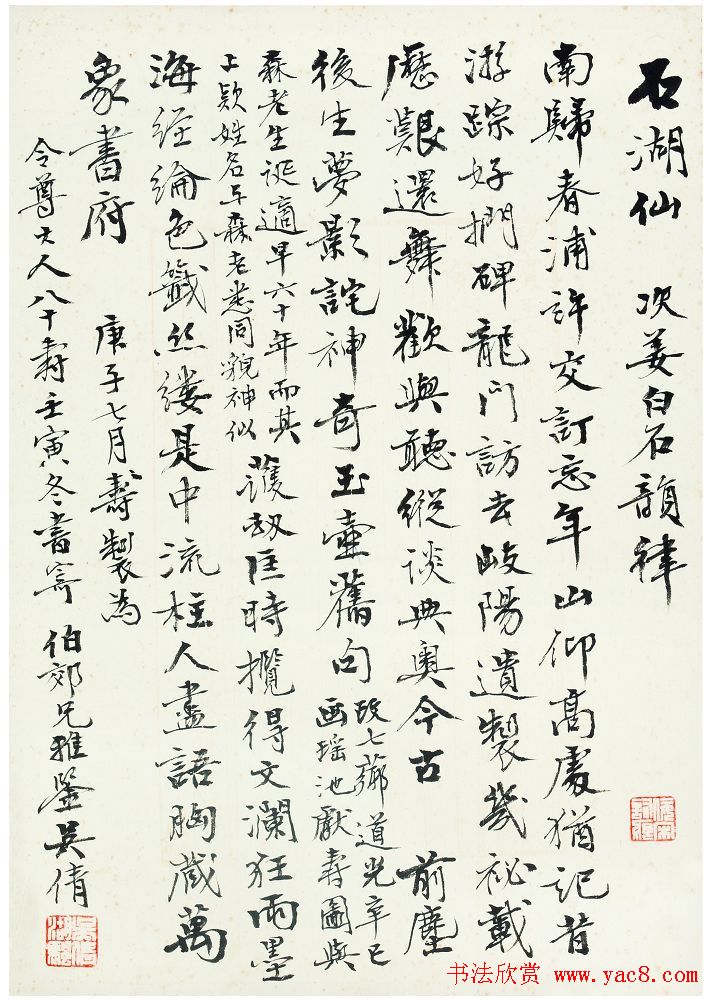 石湖仙 次姜白石韻律
南歸春浦許交訂忘年山仰高處猶記昔
游蹤好捫碑龍門訪去岐陽遺製幾祕載
歷艱還舞歡與聽縱談典奧今古 前塵
後生夢影詫神奇玉壺舊句
改七薌道光辛巳
畫瑤池獻壽圖與
森老生誕適早六十年而其
上款姓名與森老悉同貌神似
護劫匡時攬得文瀾狂雨墨
海經綸色籤絲縷是中流柱人盡語胸藏萬
象書府
庚子七月壽製為
令尊大人八十壽壬寅冬書寄 伯郊兄雅鑒吳倩
书法欣赏 www.yac8.com